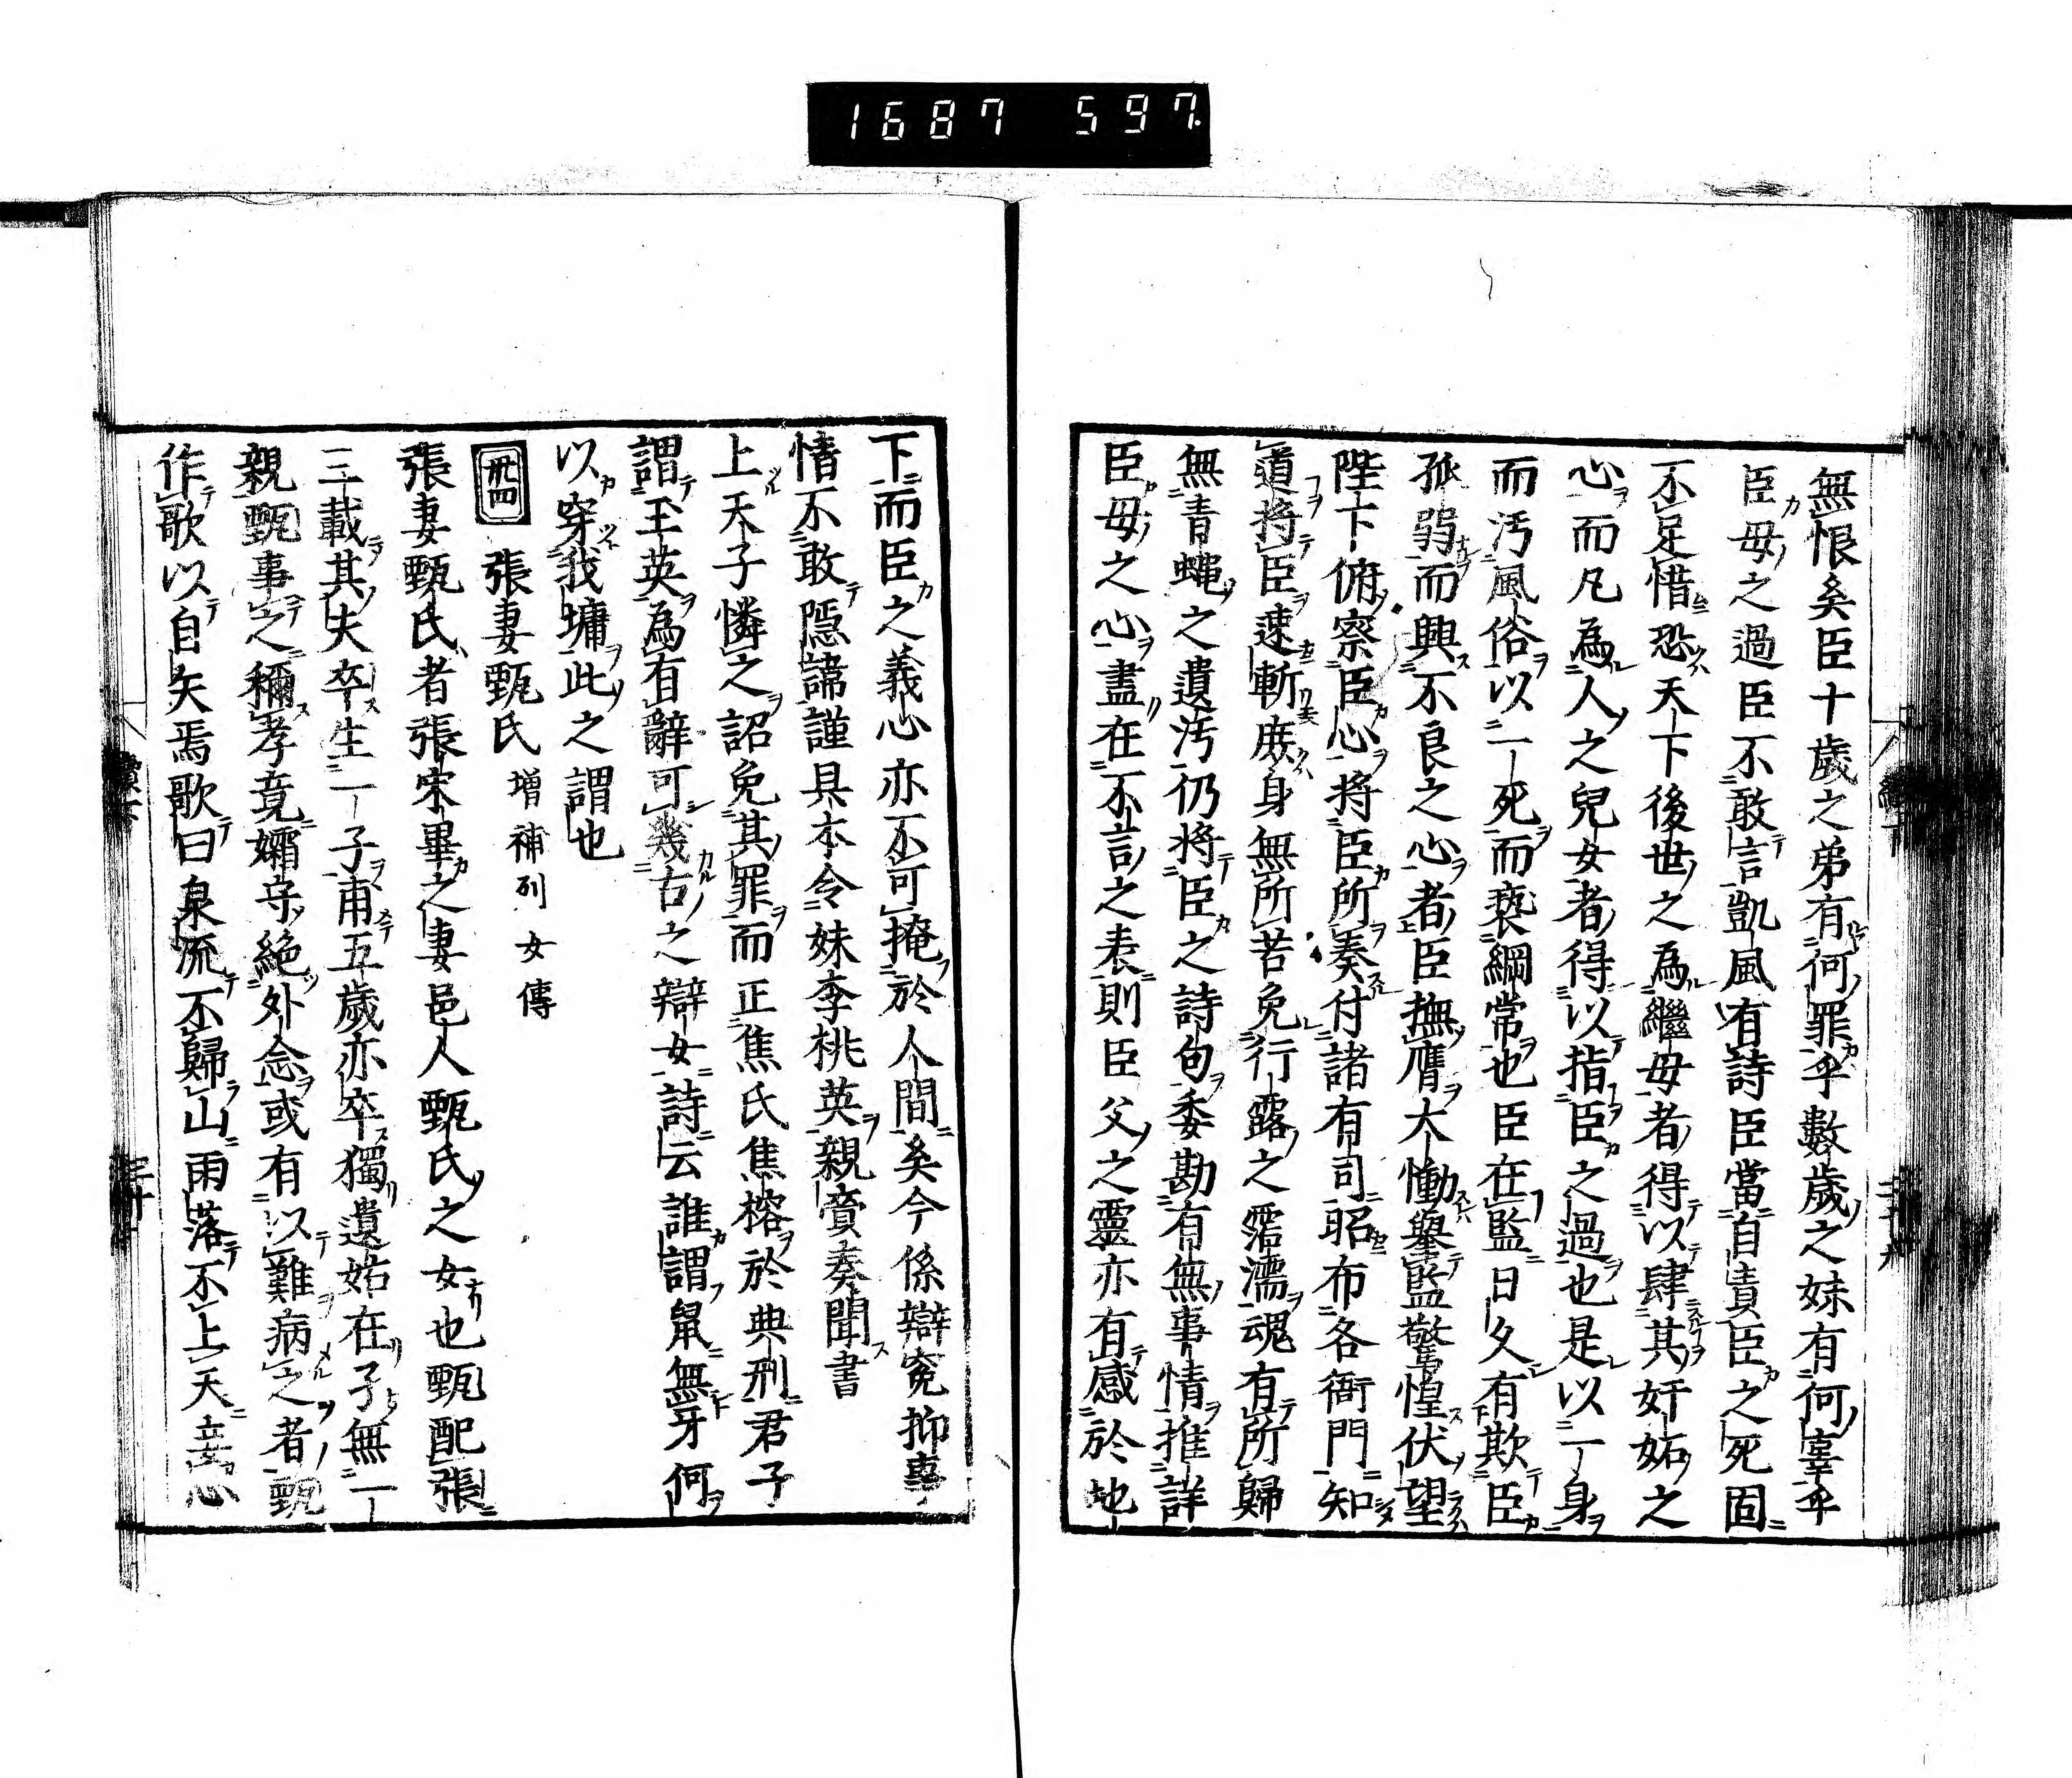 1687 597.
無恨矣臣十歲之弟有何罪乎數歲之妹有何辜乎
臣母之過臣不敢言凱風有詩臣當自責臣之死固
不足惜恐天下後世之為繼母者得以肆其奸妬之
心而凡為人之兒女者得以指臣之過也是以一身
而汚風俗以一死而褻綱常也臣在監日久有欺臣
孤弱而興不良之心者臣撫膺大慟舉監驚惶伏望
陛下俯察臣心將臣所奏付諸有司昭布各衙門知
道將臣速斬庶身無所苦免行露之霑濡魂有所歸
無青蠅之遺汚仍將臣之詩句委勘有無事情推詳
臣母之心盡在不言之表則臣父之靈亦有感於地
下而臣之義心亦不可掩於人間矣今係辯寃抑事
情不敢隱諱謹具本令妹李桃英親齎奏聞書
上天子憐之詔免其罪而正焦氏焦榕於典刑君子
謂王英為有辭可幾古之辯女詩云誰謂鼠無牙何
以穿我墉此之謂也
卅四 張妻甄氏 增補列女傳
張妻甄氏者張宋畢之妻邑人甄氏之女也甄配張
三載其夫卒生一子甫五歲亦卒獨遺姑在子無一
親甄事之稱孝竟孀守絕外念或有以難病之者甄
作歌以自矢焉歌曰泉流不歸山雨落不上天妾心